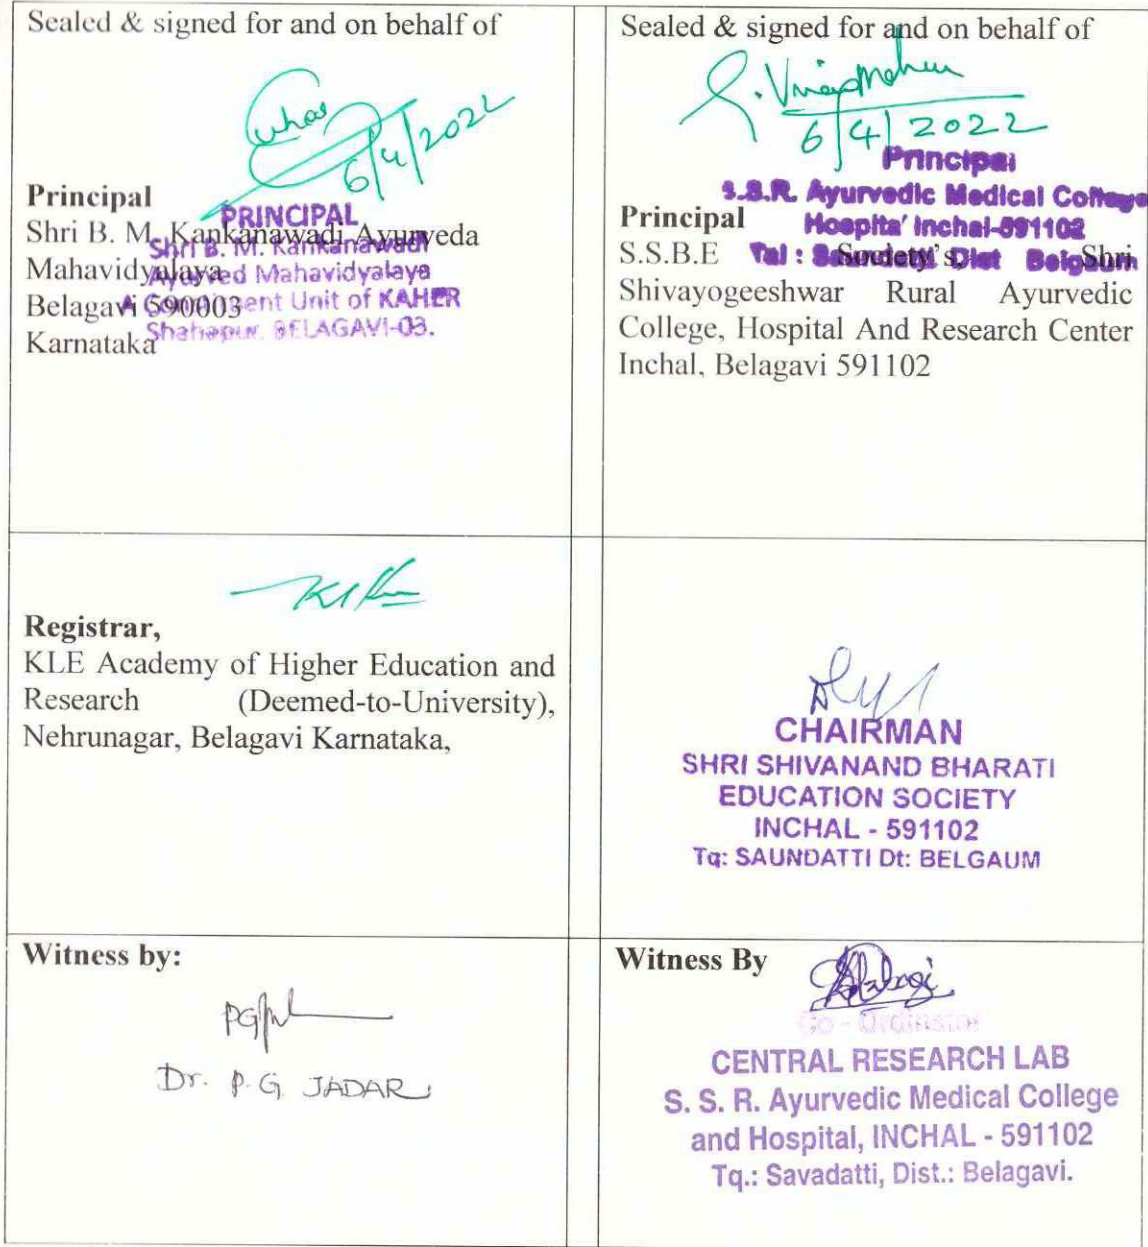 Sealed & signed for and on behalf of
6/4/2022
Principal
PRINCIPAL
Shri B. M. Kankanawadi Ayurveda
Shri B. M. Kankanawadi
Mahavidyalaya
Ayurved Mahavidyalaya
Belagavi 590003
A Component Unit of KAHER
Karnataka
Shahapur, BELAGAVI-03.
Sealed & signed for and on behalf of
6/4/2022
Principal
S.S.R. Ayurvedic Medical College
Principal
Hospita' Inchal-591102
S.S.B.E Society's, Shri
Tal : Dist Belgaum
Shivayogeeshwar Rural Ayurvedic
College, Hospital And Research Center
Inchal, Belagavi 591102
Registrar,
KLE Academy of Higher Education and
Research (Deemed-to-University),
Nehrunagar, Belagavi Karnataka,
CHAIRMAN
SHRI SHIVANAND BHARATI
EDUCATION SOCIETY
INCHAL - 591102
Tq: SAUNDATTI Dt: BELGAUM
Witness by:
Dr. P. G. JADAR
Witness By
Co - Ordinator
CENTRAL RESEARCH LAB
S. S. R. Ayurvedic Medical College
and Hospital, INCHAL - 591102
Tq.: Savadatti, Dist.: Belagavi.